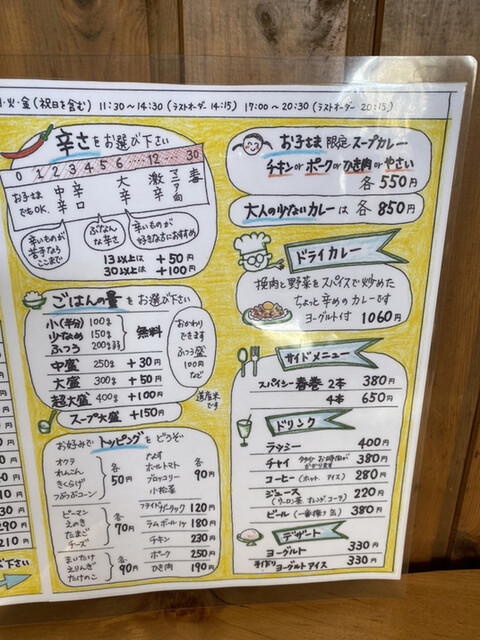 火・金(祝日を含む) 11:30~14:30(ラストオーダー 14:15) 17:00~20:30(ラストオーダー 20:15)
辛さをお選び下さい
0 1 2 3 4 5 6 … 12 … 30
お子さまでもOK.
中辛
辛口
大辛
激辛
マニア向
辛いものが苦手ならここまで
ぶなんな辛さ
辛いものが好きな方におすすめ
13以上は +50円
30以上は +100円
ごはんの量をお選び下さい
小(半分) 100g
少なめ 150g
ふつう 200g弱
無料
中盛 250g +30円
大盛 300g +50円
超大盛 400g +100円
スープ大盛 +150円
おかわりできます
ふつう盛
100円
など
道産米です
お好みで トッピングを どうぞ
オクラ
れんこん
きくらげ
つぶつぶコーン
各50円
なす
ホールトマト
ブロッコリー
小松菜
各90円
ピーマン
えのき
たまご
チーズ
各70円
まいたけ
えりんぎ
たけのこ
各90円
フライドガーリック 120円
ラムボール1ヶ 180円
チキン 230円
ポーク 250円
ひき肉 190円
お子さま 限定 スープカレー
チキンorポークorひき肉orやさい
各550円
大人の少ないカレーは 各850円
ドライカレー
挽肉と野菜をスパイスで炒めた
ちょっと辛めのカレーです
ヨーグルト付 1060円
サイドメニュー
スパイシー春巻 2本 380円
4本 650円
ドリンク
ラッシー 400円
チャイ 380円
コーヒー(ホット、アイス) 280円
ジュース 220円
(ウーロン茶、オレンジ、コーラ)
ビール(一番搾り缶) 380円
デザート
ヨーグルト 330円
手作りヨーグルトアイス 330円